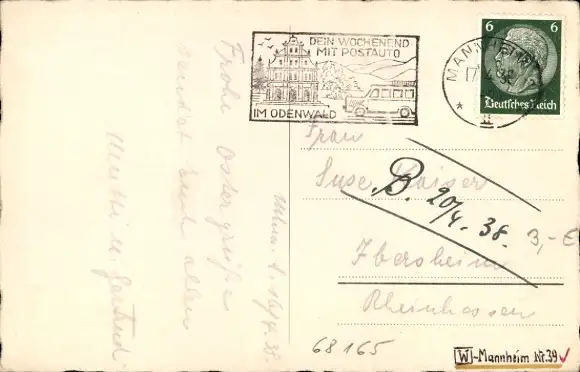 DEIN WOCHENEND
MIT POSTAUTO
IM ODENWALD
MANNHEIM
6 6
Deutsches Reich
Frohe Ostergrüße
sendet Euch allen
Mutti u. Gertrud
Frau
Suse Kaiser
Ibersheim
Rheinhessen
B. 20/4.38.
3,-E
68165
W-Mannheim Nr.39